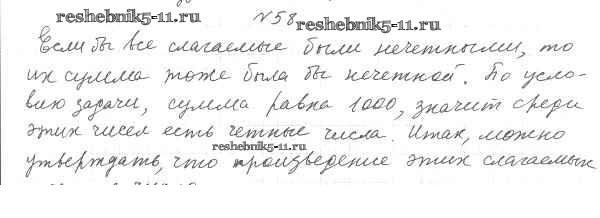 №58
reshebnik5-11.ru reshebnik5-11.ru
Если бы все слагаемые были нечетными, то
их сумма тоже была бы нечетной. По усло-
вию задачи, сумма равна 1000, значит среди
этих чисел есть четные числа. Итак, можно
reshebnik5-11.ru
утверждать, что произведение этих слагаемых